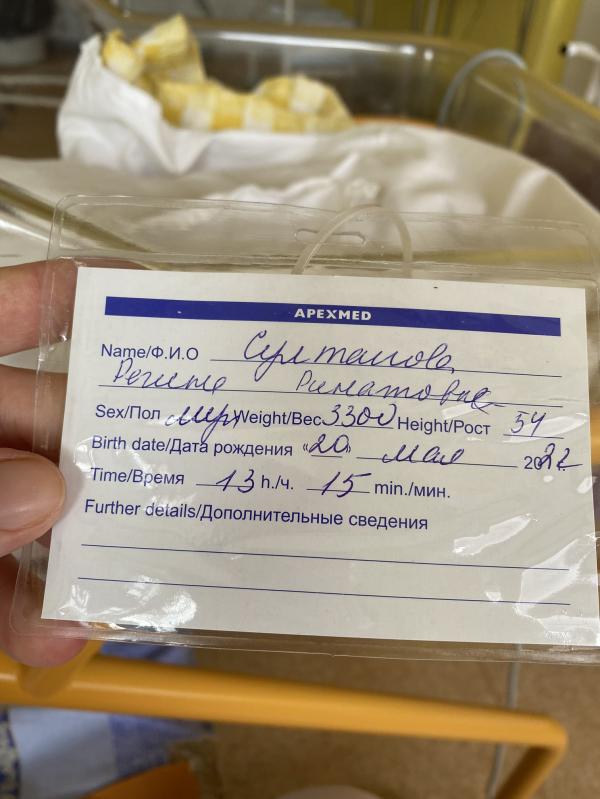 APEXMED
Name/Ф.И.О Султанова
Регина Ринатовна
Sex/Пол муж Weight/Вес 3300 Height/Рост 54
Birth date/Дата рождения «20» мая 2022
Time/Время 13 h./ч. 15 min./мин.
Further details/Дополнительные сведения